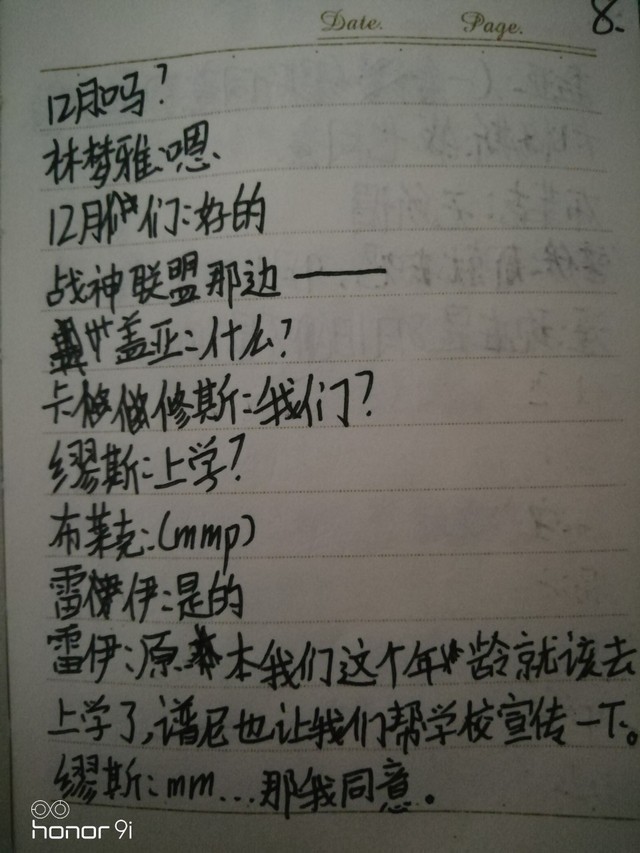 Date. Page. 8.
12月吗？
林梦雅:嗯
12月们:好的
战神联盟那边——
盖亚:什么？
卡修斯:我们？
缪斯:上学？
布莱克:(mmp)
雷伊:是的
雷伊:原本我们这个年龄就该去
上学了,谱尼也让我们帮学校宣传一下。
缪斯:mm...那我同意。
honor 9i